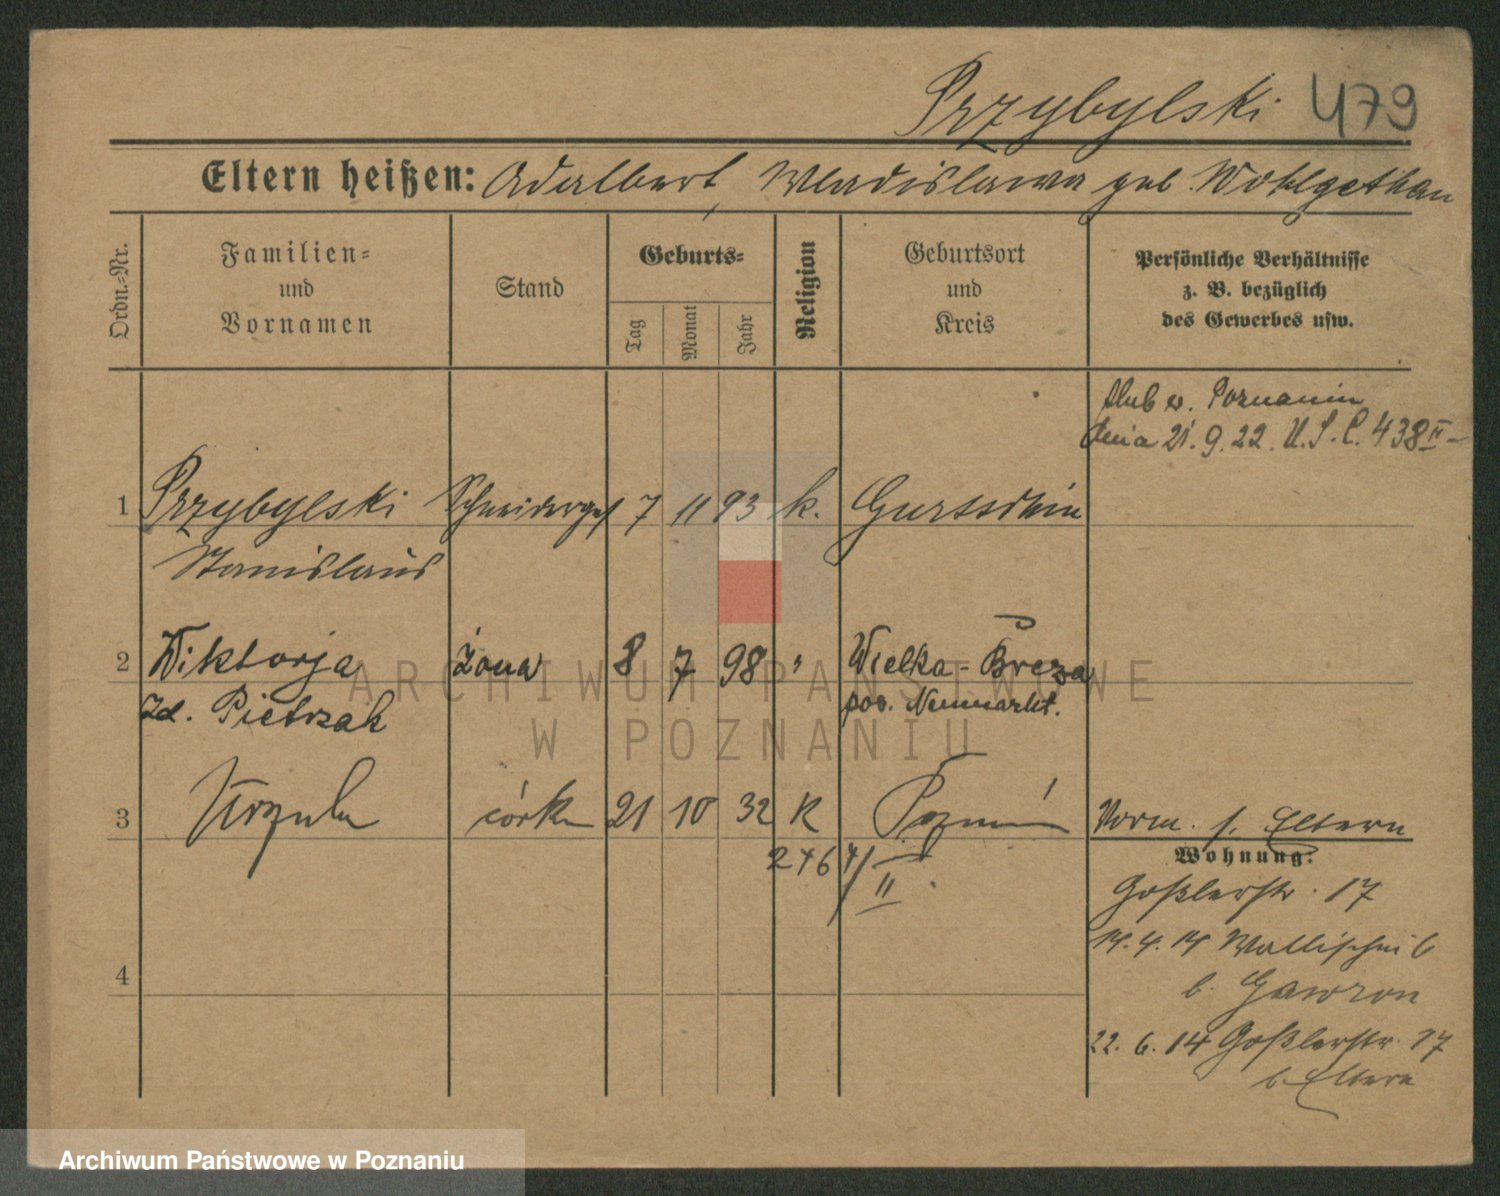 Przybylski 479
Eltern heißen: Adalbert, Wladislawa geb. Wohlgethan
Ordn.-Nr.
Familien-
und
Vornamen
Stand
Geburts-
Tag
Monat
Jahr
Religion
Geburtsort
und
Kreis
Persönliche Verhältnisse
z. B. bezüglich
des Gewerbes usw.
ślub w. Poznaniu
dnia 21. 9. 22. U. S. C. 438 II
1 Przybylski Schneiderges 7 11 93 k.
Stanislaus
2 Wiktorja żona 8 7 98 " Wielka-Breza
zd. Pietrzak pow. Neumarkt.
3 Urzula córka 21 10 32 R Poznań Vorm. s. Eltern
2464/II
Wohnung:
Goßlerstr. 17
14. 4. 14 Wallischei 6
b. Gawron
4
22. 6. 14 Goßlerstr. 17
b. Eltern
ARCHIWUM PAŃSTWOWE
W POZNANIU
Archiwum Państwowe w Poznaniu